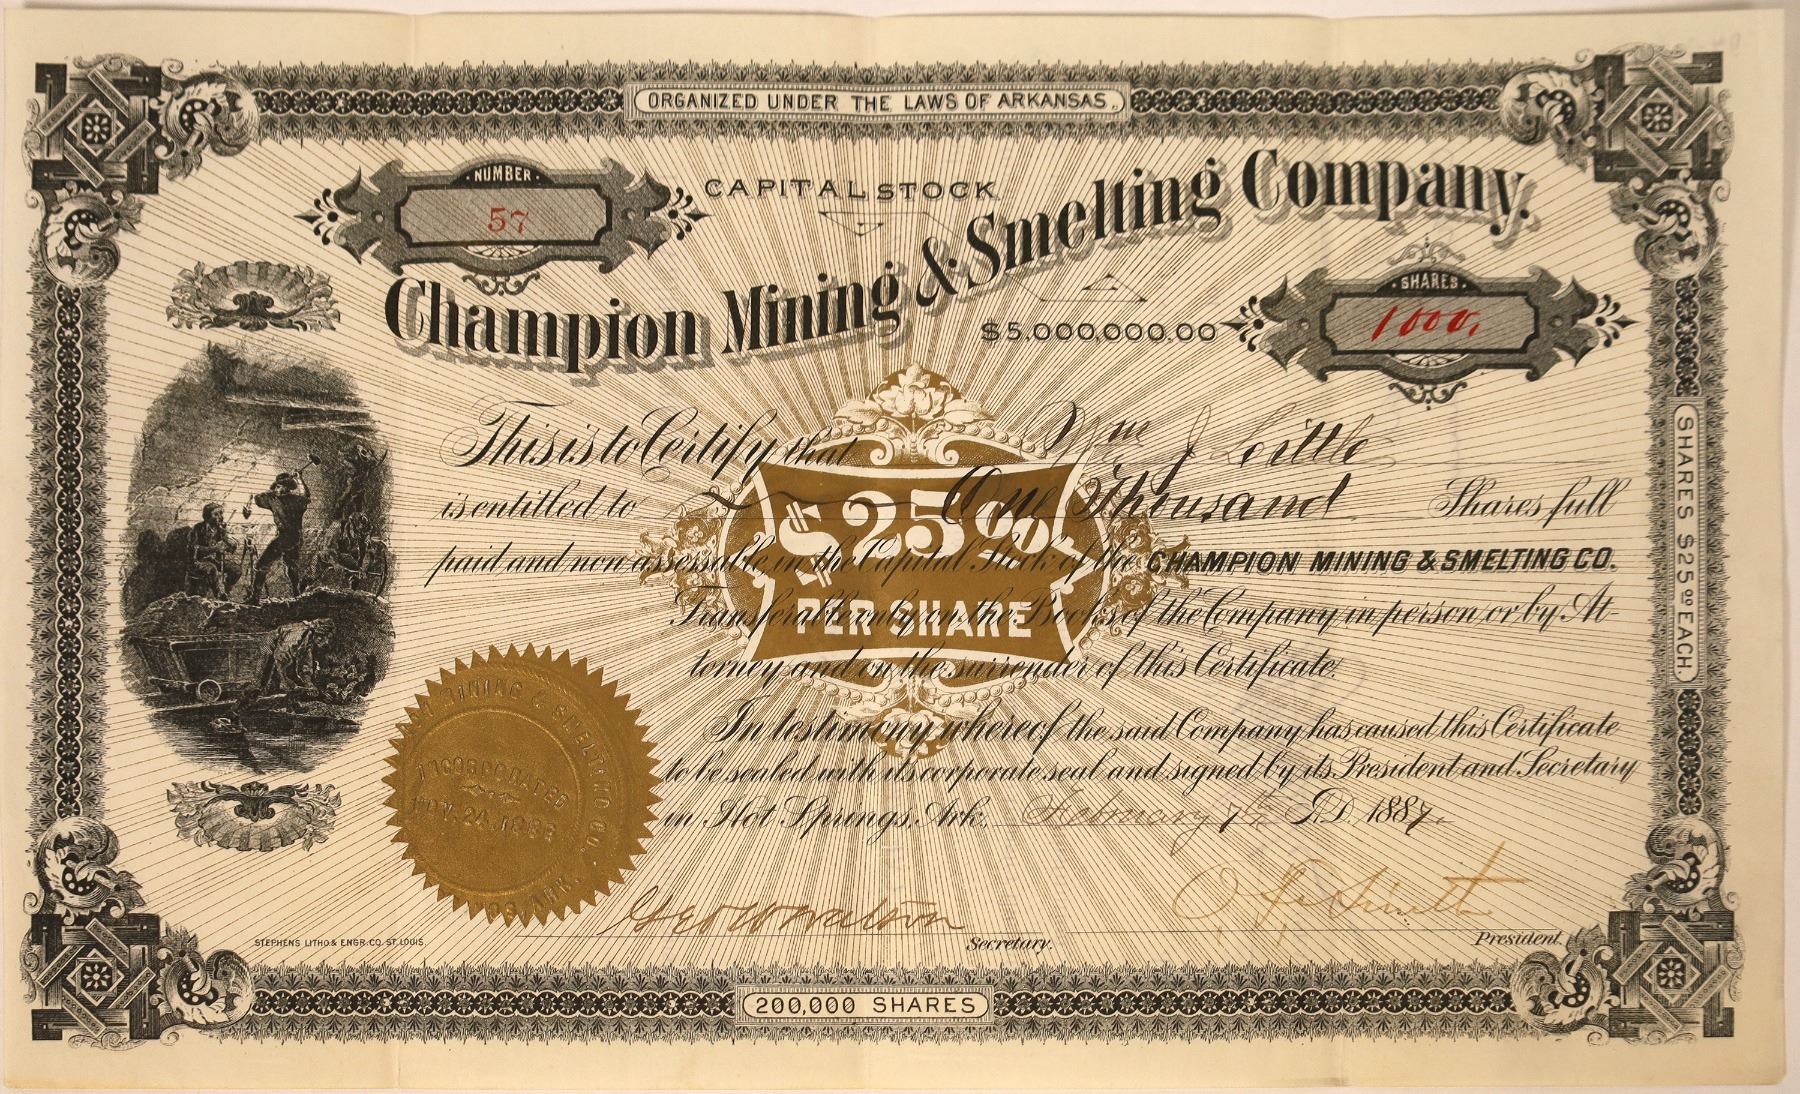 ORGANIZED UNDER THE LAWS OF ARKANSAS.
NUMBER
57
CAPITAL STOCK
Champion Mining & Smelting Company.
$5,000,000.00
SHARES
1000.
This is to Certify that Wm J Little
is entitled to One Thousand Shares full
paid and non assessable in the Capital Stock of the CHAMPION MINING & SMELTING CO.
Transferable only on the Books of the Company in person or by At-
torney and on the surrender of this Certificate.
$25 00
PER SHARE
In testimony whereof the said Company has caused this Certificate
to be sealed with its corporate seal and signed by its President and Secretary
in Hot Springs, Ark, February 7th A.D. 1887.
MINING & SMELTING CO.
INCORPORATED
NOV. 24, 1886
ARK.
Secretary.
President.
STEPHENS LITHO & ENGR. CO. ST. LOUIS.
SHARES $25 00 EACH.
200,000 SHARES